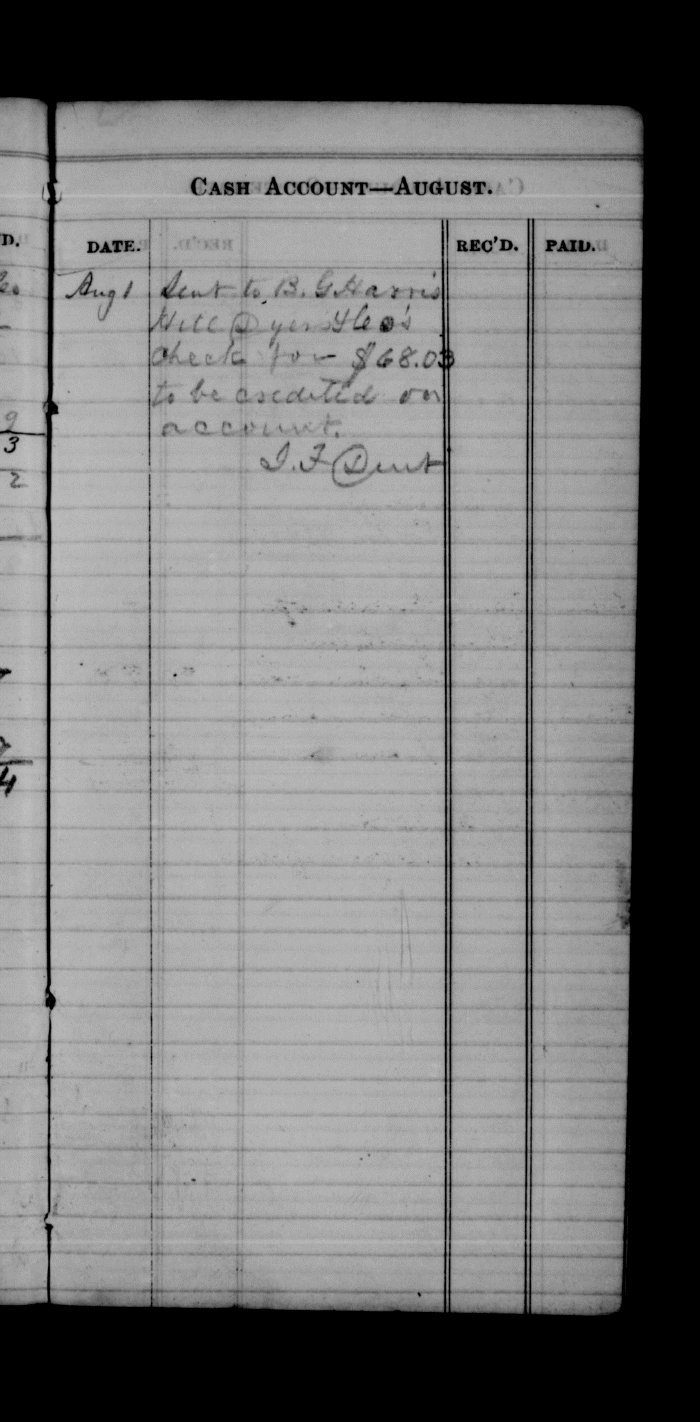 CASH ACCOUNT—AUGUST.
DATE. REC'D. PAID.
Aug 1 Sent to B. G. Harris
Hill Dyer & Co's
check for $68.03
to be credited on
account.
I. F Dent
D.
9
3
2
4